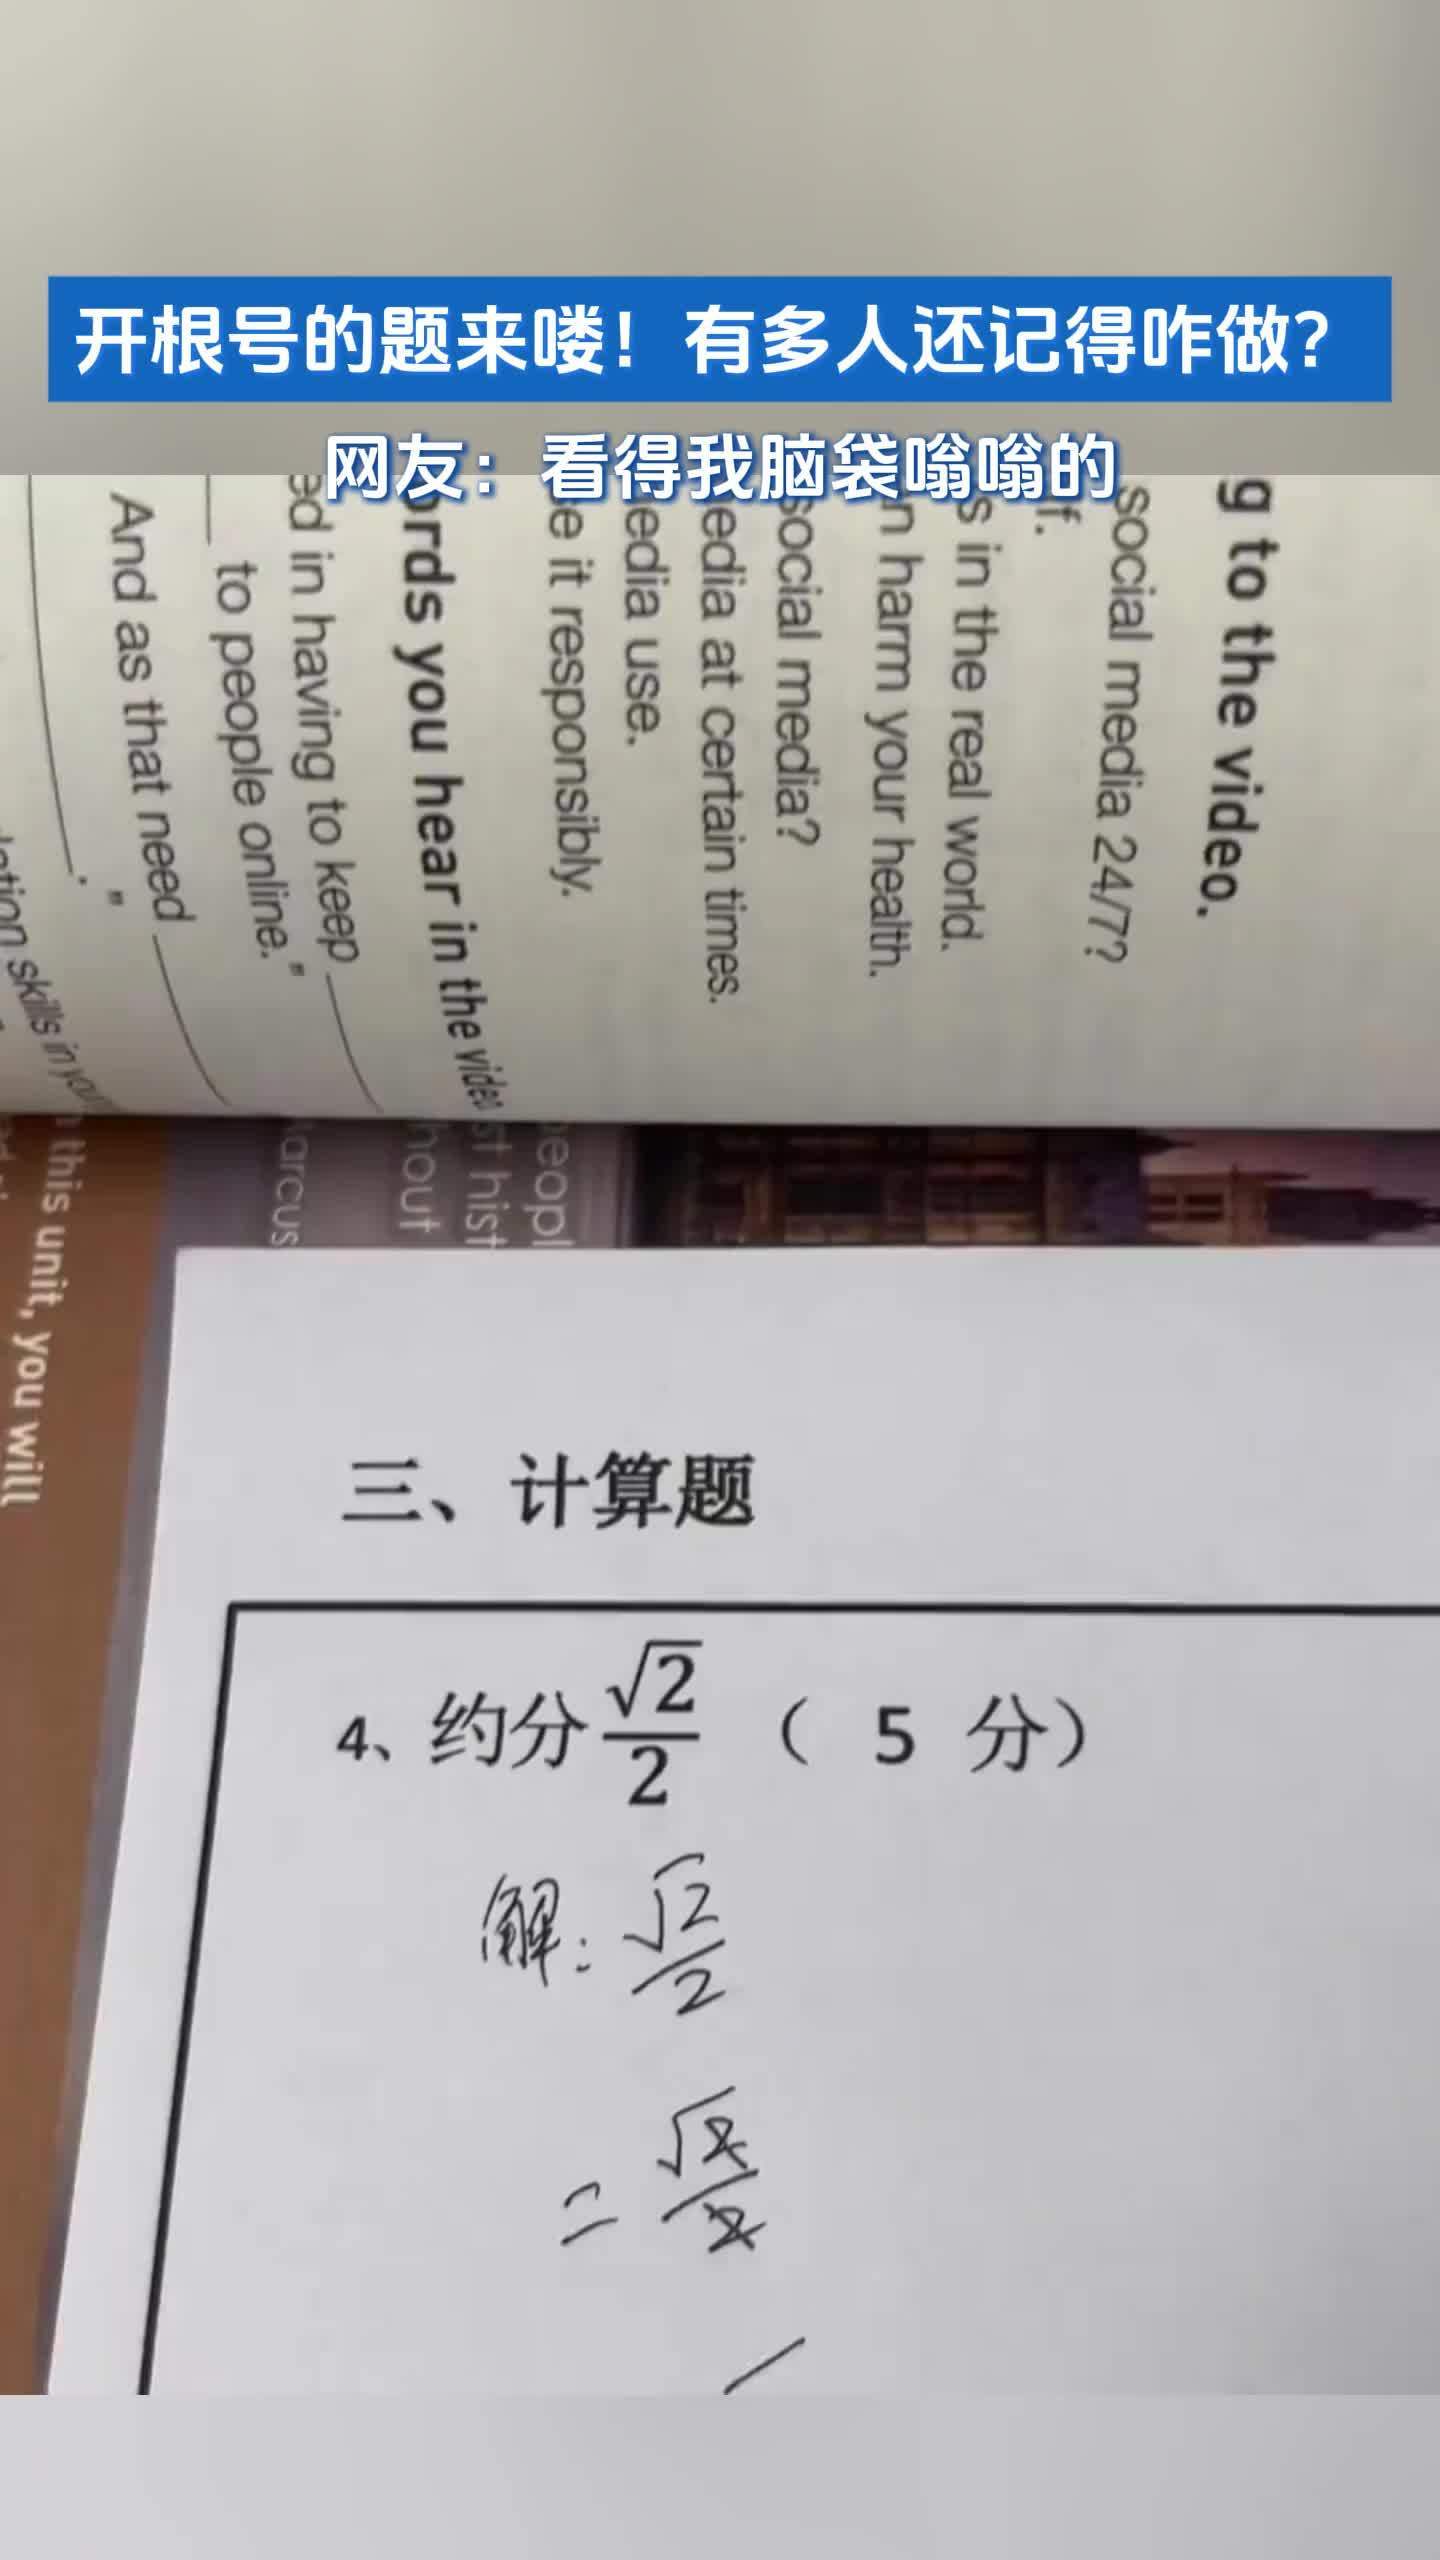 开根号的题来喽！有多人还记得咋做？
网友：看得我脑袋嗡嗡的
g to the video.
social media 24/7?
f.
s in the real world.
n harm your health.
social media?
edia at certain times.
edia use.
e it responsibly.
ords you hear in the video
ed in having to keep
to people online."
And as that need
."
skills in your
eopl
st hist
hout
arcus
this unit, you will
三、计算题
4、约分 √2/2 （ 5 分）
解：√2/2
= √2/2